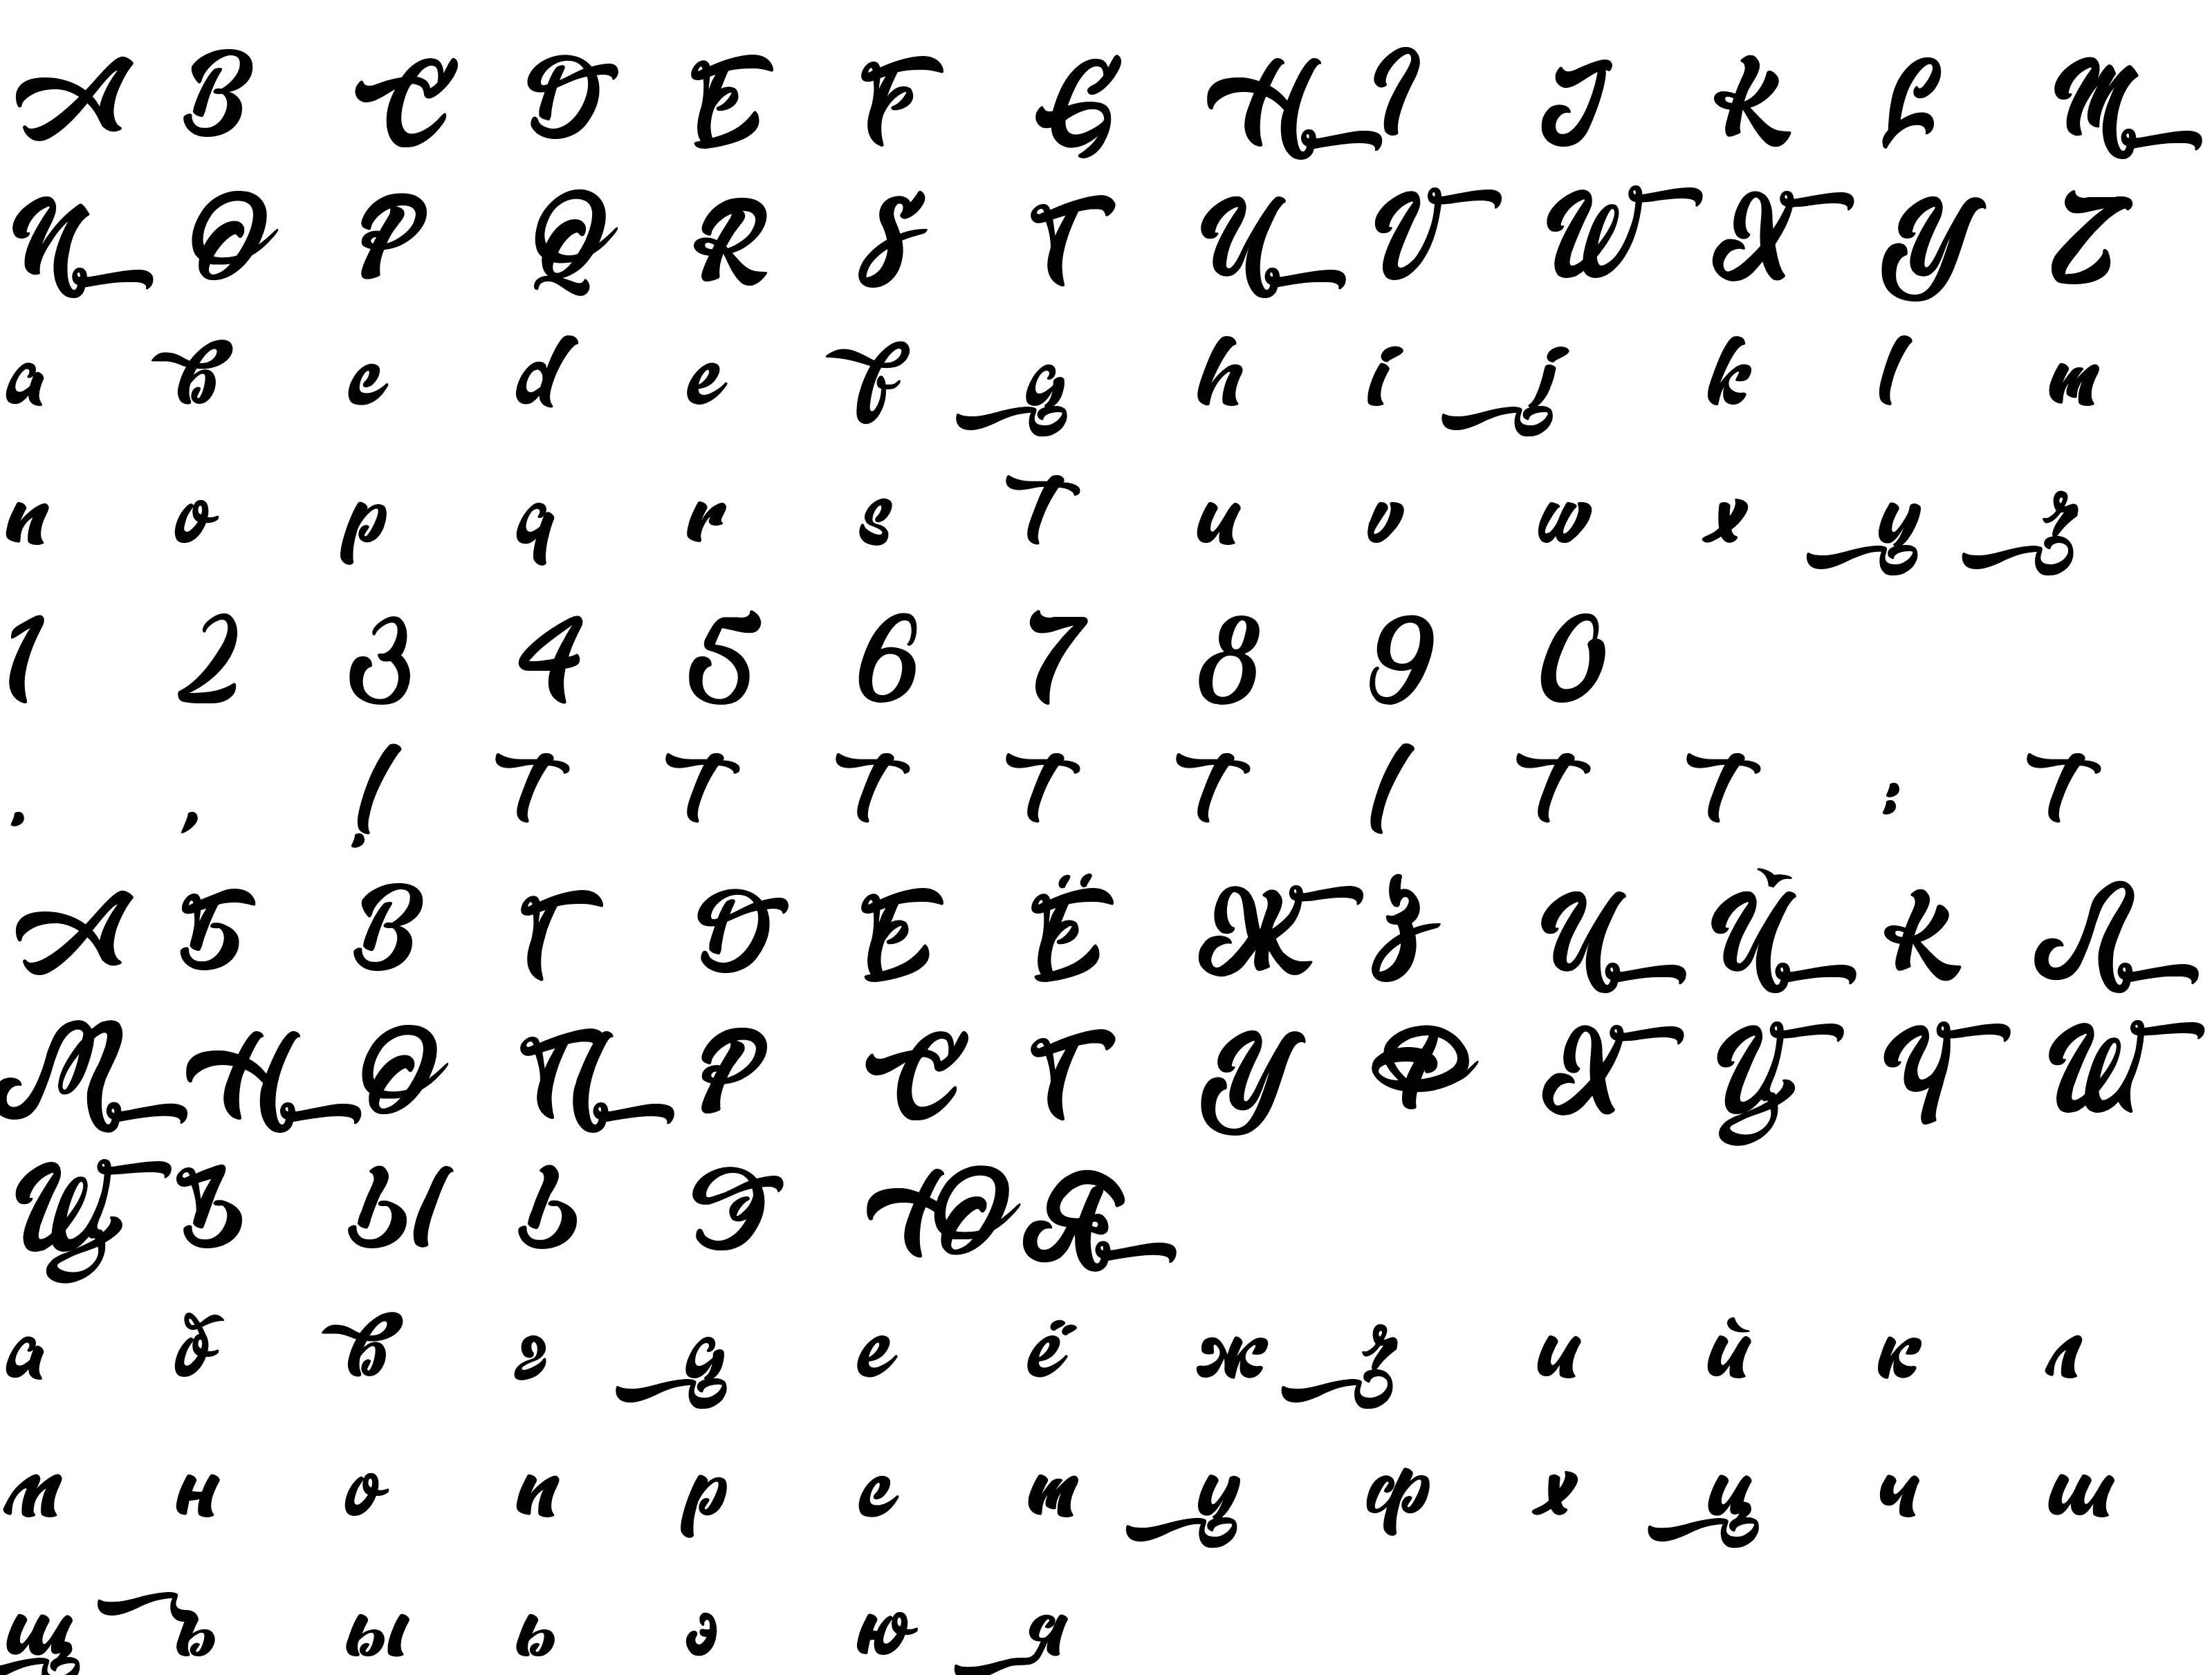 A B C D E F G H I J K L M
N O P Q R S T U V W X Y Z
a b c d e f g h i j k l m
n o p q r s t u v w x y z
1 2 3 4 5 6 7 8 9 0
. , ! t t t t t / t t : t
А Б В Г Д Е Ё Ж З И Й К Л
М Н О П Р С Т У Ф Х Ц Ч Ш
Щ Ъ Ы Ь Э Ю Я
а б в г д е ё ж з и й к л
м н о п р с т у ф х ц ч ш
щ ъ ы ь э ю я